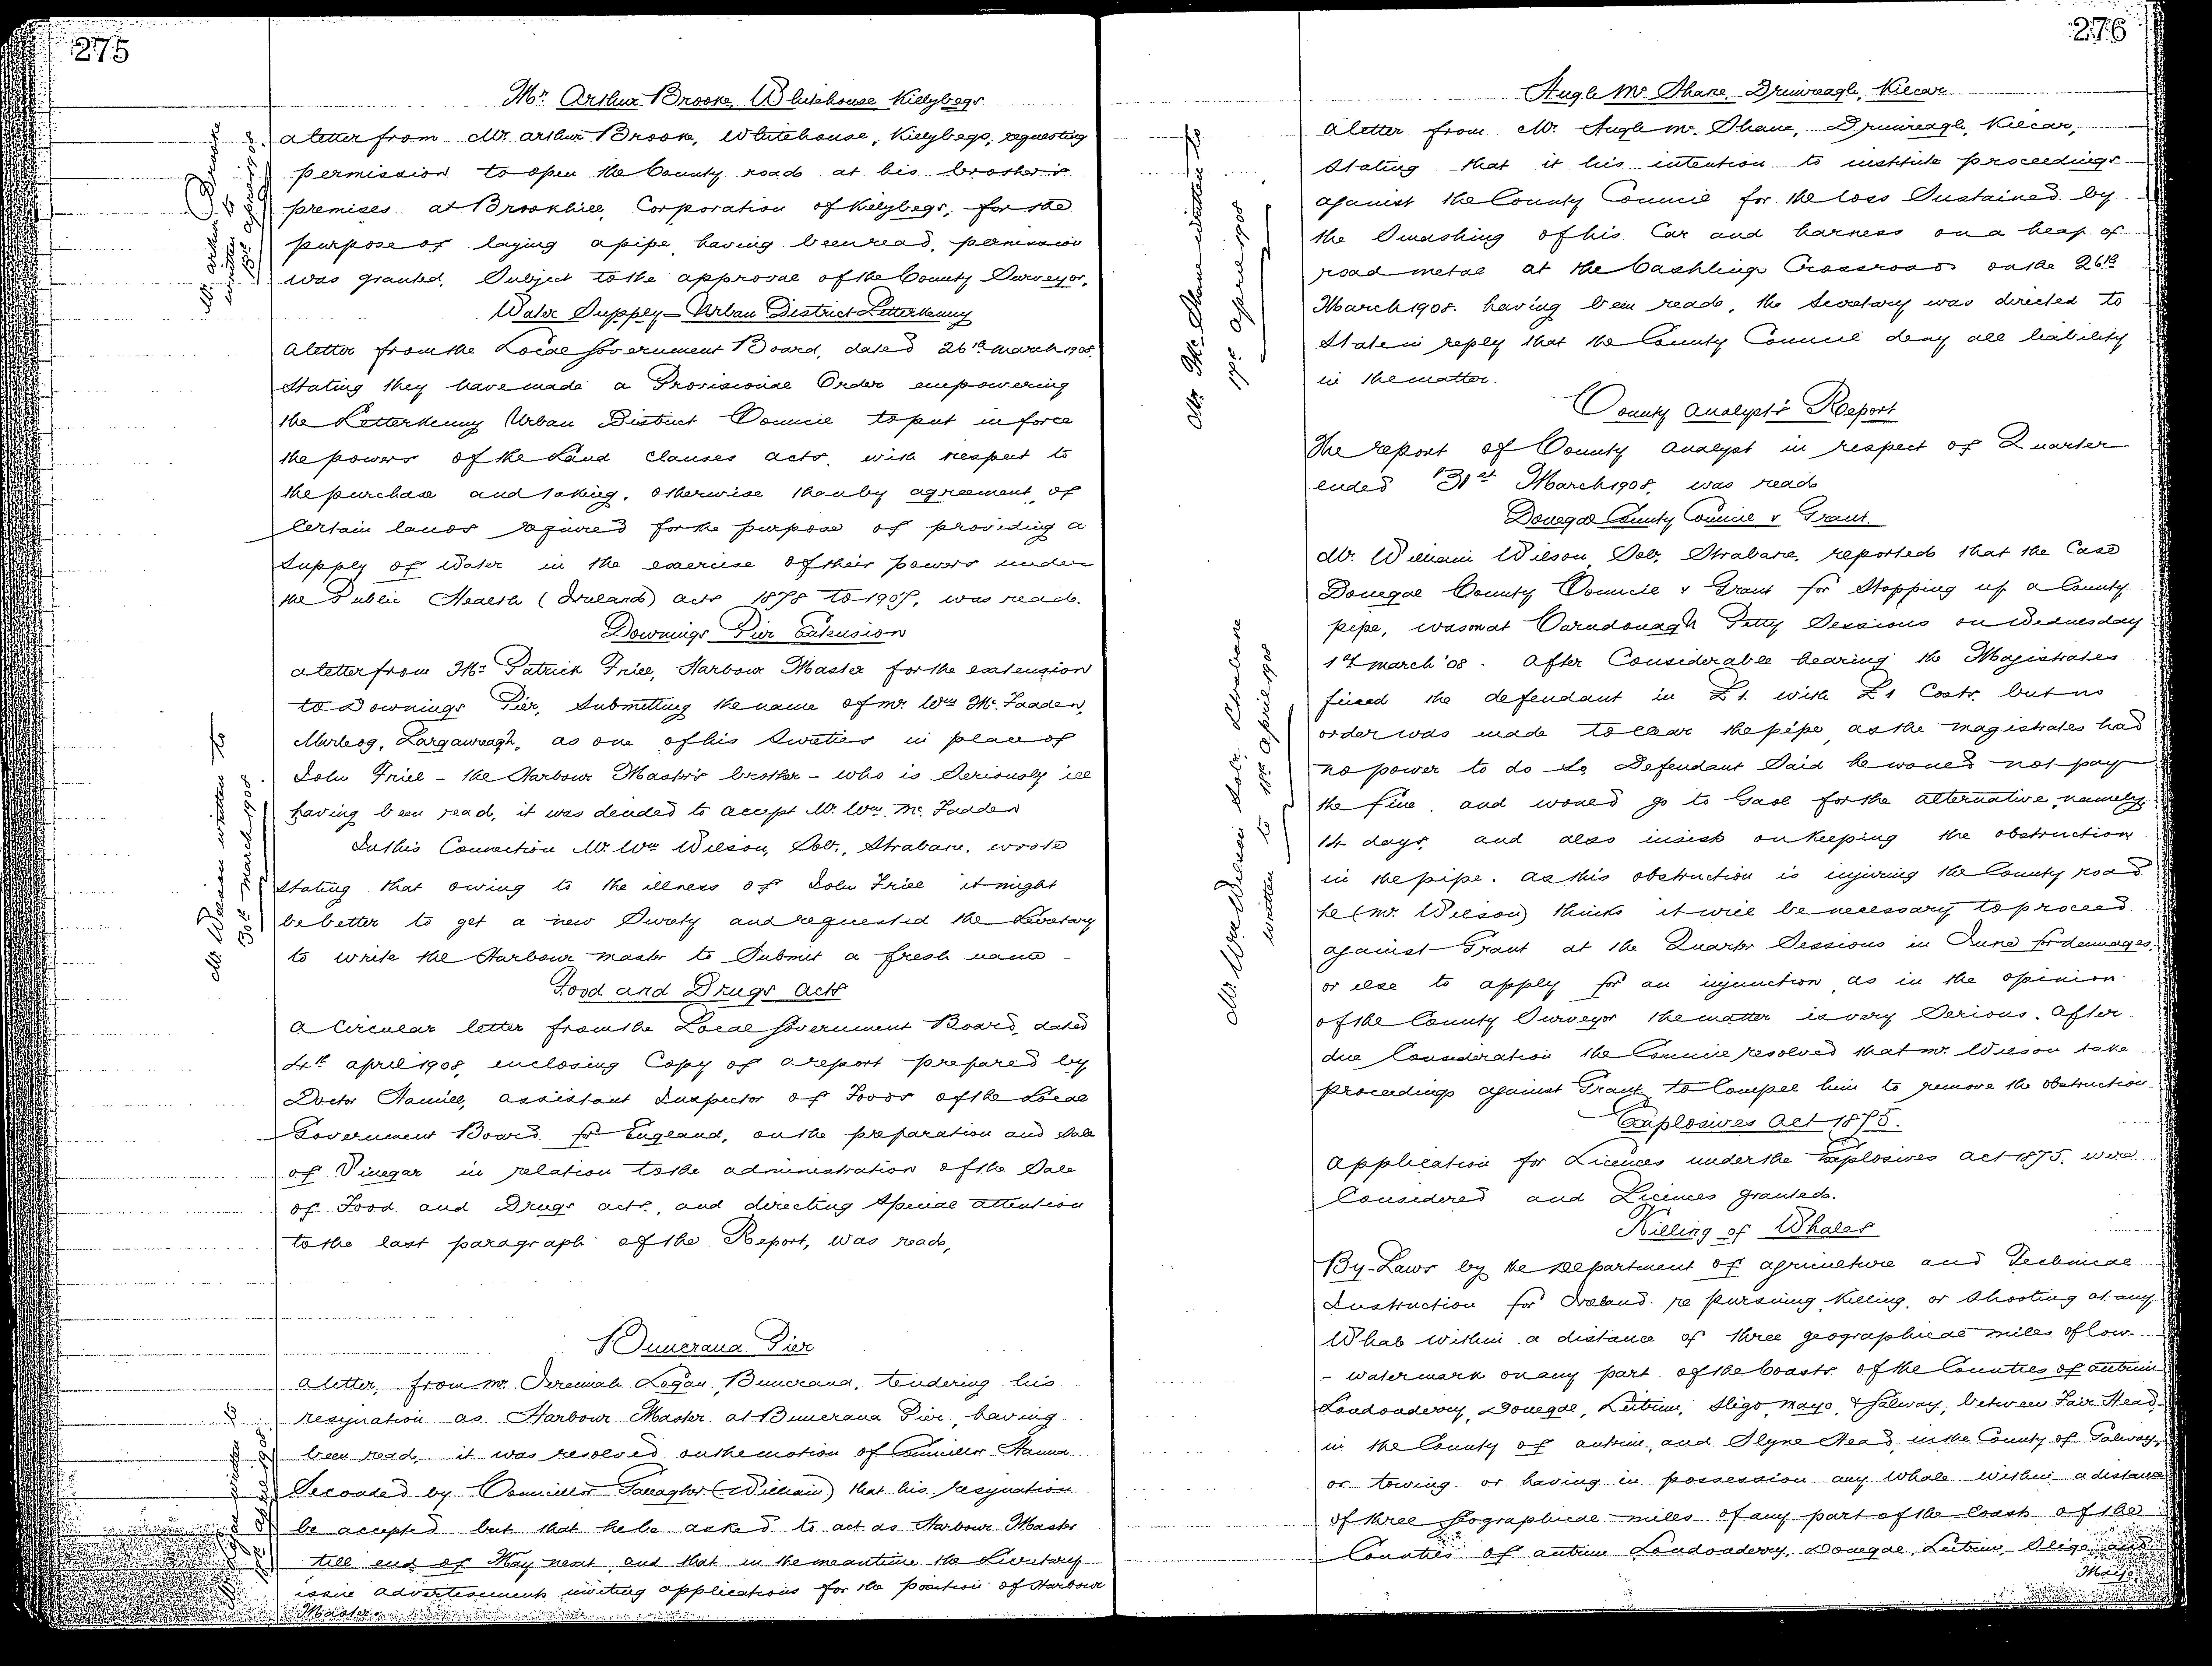 275
Mr. Arthur Brooke, Whitehouse, Killybegs
a letter from Mr. Arthur Brooke, Whitehouse, Killybegs, requesting
permission to open the County road at his brother's
premises at Brookhill, Corporation of Killybegs, for the
purpose of laying a pipe, having been read, permission
was granted, Subject to the approval of the County Surveyor.
Mr. Arthur Brooke
written to
13th april 1908.
Water Supply - Urban District Letterkenny
A letter from the Local Government Board, dated 26th March 1908.
Stating they have made a Provisional Order empowering
the Letterkenny Urban District Council to put in force
the powers of the Land Clauses acts, with respect to
the purchase and taking, otherwise than by agreement, of
Certain lands required for the purpose of providing a
Supply of Water in the exercise of their powers under
the Public Health (Ireland) acts 1878 to 1907, was read.
Downings Pier Extension
a letter from Mr. Patrick Friel, Harbour Master for the extension
to Downings Pier, Submitting the name of Mr. Wm. Mc. Fadden,
Largawreagh, as one of his Sureties in place of
John Friel - the Harbour Master's brother - who is Seriously ill
having been read, it was decided to accept Mr. Wm. Mc. Fadden
In this Connection Mr. Wm Wilson, Solr., Strabane, wrote
Stating that owing to the illness of John Friel it might
be better to get a new Surety and requested the Secretary
to write the Harbour Master to Submit a fresh name -
Mr. Wilson written to
30th March 1908.
Food and Drugs Acts
A Circular letter from the Local Government Board, dated
4th april 1908, enclosing Copy of a report prepared by
Doctor Hamill, assistant Inspector of Foods of the Local
Government Board for England, on the preparation and Sale
of Vinegar in relation to the administration of the Sale
of Food and Drugs acts, and directing Special attention
to the last paragraph of the Report, was read,
Buncrana Pier
a letter, from Mr. Jeremiah Logan, Buncrana, tendering his
resignation as Harbour Master at Buncrana Pier, having
been read, it was resolved on the motion of Councillor Hanna
Seconded by Councillor Gallagher (William) that his resignation
be accepted but that he be asked to act as Harbour Master
till end of May next, and that in the meantime the Secretary
issue advertisements inviting applications for the position of Harbour
Master.
Mr. Logan written to
april 1908.
276
Hugh Mc Shane, Drimreagh, Kilcar
a letter from Mr. Hugh Mc. Shane, Drimreagh, Kilcar,
Stating that it his intention to institute proceedings
against the County Council for the loss Sustained by
the Smashing of his Car and harness on a heap of
road metal at the Cashlings Crossroads on the 26th
March 1908. having been read, the Secretary was directed to
State in reply that the County Council deny all liability
in the matter.
Mr. Mc. Shane written to
april 1908.
County Analyst's Report
The report of County Analyst in respect of Quarter
ended 31st March 1908, was read
Donegal County Council v Grant.
Mr. William Wilson, Solr, Strabane, reported that the Case
Donegal County Council v Grant for Stopping up a County
pipe, was on at Carndonagh Petty Sessions on Wednesday
1st March '08. After Considerable hearing the Magistrates
fined the defendant in £1. with £1 Costs, but no
order was made to clear the pipe, as the Magistrates had
no power to do so, Defendant Said he would not pay
the fine, and would go to Gaol for the alternative, namely
14 days, and also insist on keeping the obstruction
in the pipe. as this obstruction is injuring the County road
he (Mr. Wilson) thinks it will be necessary to proceed
against Grant at the Quarter Sessions in June for damages,
or else to apply for an injunction, as in the opinion
of the County Surveyor the matter is very Serious. After
due Consideration the Council resolved that Mr. Wilson take
proceedings against Grant to Compel him to remove the obstruction.
Mr. Wm Wilson Solr, Strabane
written to 18th april 1908
Explosives Act 1875.
Application for Licences under the Explosives Act 1875. were
Considered and Licences granted.
Killing of Whales
By-Laws by the Department of Agriculture and Technical
Instruction for Ireland re pursuing, Killing, or Shooting at any
Whale within a distance of three geographical miles of low-
- watermark on any part of the Coasts of the Counties of Antrim
Londonderry, Donegal, Leitrim, Sligo, Mayo, & Galway, between Fair Head
in the County of Antrim, and Slyne Head in the County of Galway,
or towing or having in possession any Whale within a distance
of three geographical miles of any part of the Coasts of the
Counties of Antrim Londonderry, Donegal, Leitrim, Sligo, and
Mayo,